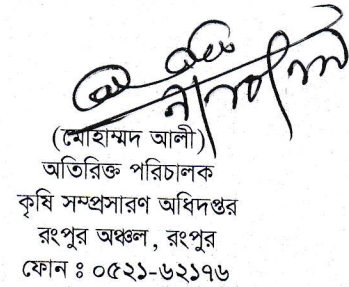 (মোহাম্মদ আলী)
অতিরিক্ত পরিচালক
কৃষি সম্প্রসারণ অধিদপ্তর
রংপুর অঞ্চল, রংপুর
ফোন ঃ ০৫২১-৬২১৭৬